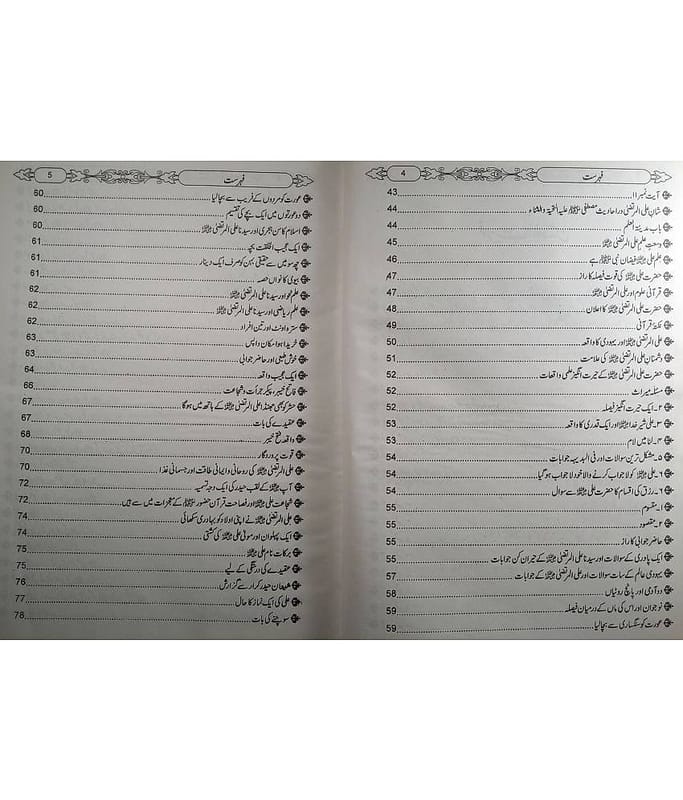 4 فہرست
آیت نمبر ۱۱ 43
شانِ علی المرتضیٰ در احادیث مصطفیٰ ﷺ علیہ التحیۃ والثناء 44
باب مدینۃ العلم 44
وسعتِ علم علی المرتضیٰ 45
علم علی فیضان نبی ﷺ ہے 46
حضرت علی کی قوت فیصلہ کا راز 47
قرآنی علوم اور علی المرتضیٰ 47
حضرت علی المرتضیٰ کا اعلان 48
نکتۂ قرآنی 49
علی المرتضیٰ اور یہودی کا واقعہ 50
دشمنانِ علی المرتضیٰ کی علامت 51
حضرت علی المرتضیٰ کے حیرت انگیز علمی واقعات 52
مسئلہ میراث 52
۲۔ ایک حیرت انگیز فیصلہ 52
۳۔ علی شیر خدا اور ایک قدری کا واقعہ 53
۴۔ لنا میں لام 53
۵۔ مشکل ترین سوالات اور فی البدیہہ جوابات 54
۶۔ علی کو لاجواب کرنے والا خود لاجواب ہو گیا 54
۶۔ رزق کی اقسام کا حضرت علی سے سوال 54
۱۔ مقسوم 55
۲۔ مقصود 55
حاضر جوابی کا راز 55
ایک پادری کے سوالات اور سیدنا علی المرتضیٰ کے حیران کن جوابات 55
یہودی عالم کے سات سوالات اور علی المرتضیٰ کے جوابات 57
دو آدمی اور پانچ روٹیاں 58
نوجوان اور اس کی ماں کے درمیان فیصلہ 59
عورت کو سنگساری سے بچالیا 59
5 فہرست
عورت کو مردوں کے فریب سے بچالیا 60
دو عورتوں میں ایک بچے کی تقسیم 60
اسلام کا سن ہجری اور سیدنا علی المرتضیٰ 60
ایک عجیب الخلقت بچہ 61
چھ سو میں سے حقیقی بہن کو صرف ایک دینار 61
بیوی کا نواں حصہ 61
علم نحو اور سیدنا علی المرتضیٰ 62
علم ریاضی اور سیدنا علی المرتضیٰ 62
سترہ اونٹ اور تین افراد 62
خریدا ہوا مکان واپس 63
خوش طبعی اور حاضر جوابی 63
ایک عجیب واقعہ 64
فاتح خیبر، پیکر جرأت و شجاعت 66
حشر کو بھی جھنڈا علی المرتضیٰ کے ہاتھ میں ہوگا 67
عقیدے کی بات 67
واقعہ فتح خیبر 68
قوت پروردگار 70
علی المرتضیٰ کی روحانی و ایمانی طاقت اور جسمانی غذا 70
آپ کے لقب حیدر کی ایک وجہ تسمیہ 72
شجاعت علی اور فصاحت قرآن حضور ﷺ کے معجزات میں سے ہیں 72
علی المرتضیٰ نے اپنی اولاد کو بہادری سکھائی 74
ایک پہلوان اور مولیٰ علی کی کشتی 74
برکات نام علی 75
عقیدے کی درستگی کے لیے 75
شیعان حیدر کرار سے گزارش 76
علی کی ایک نماز کا حال 77
سوچنے کی بات 78